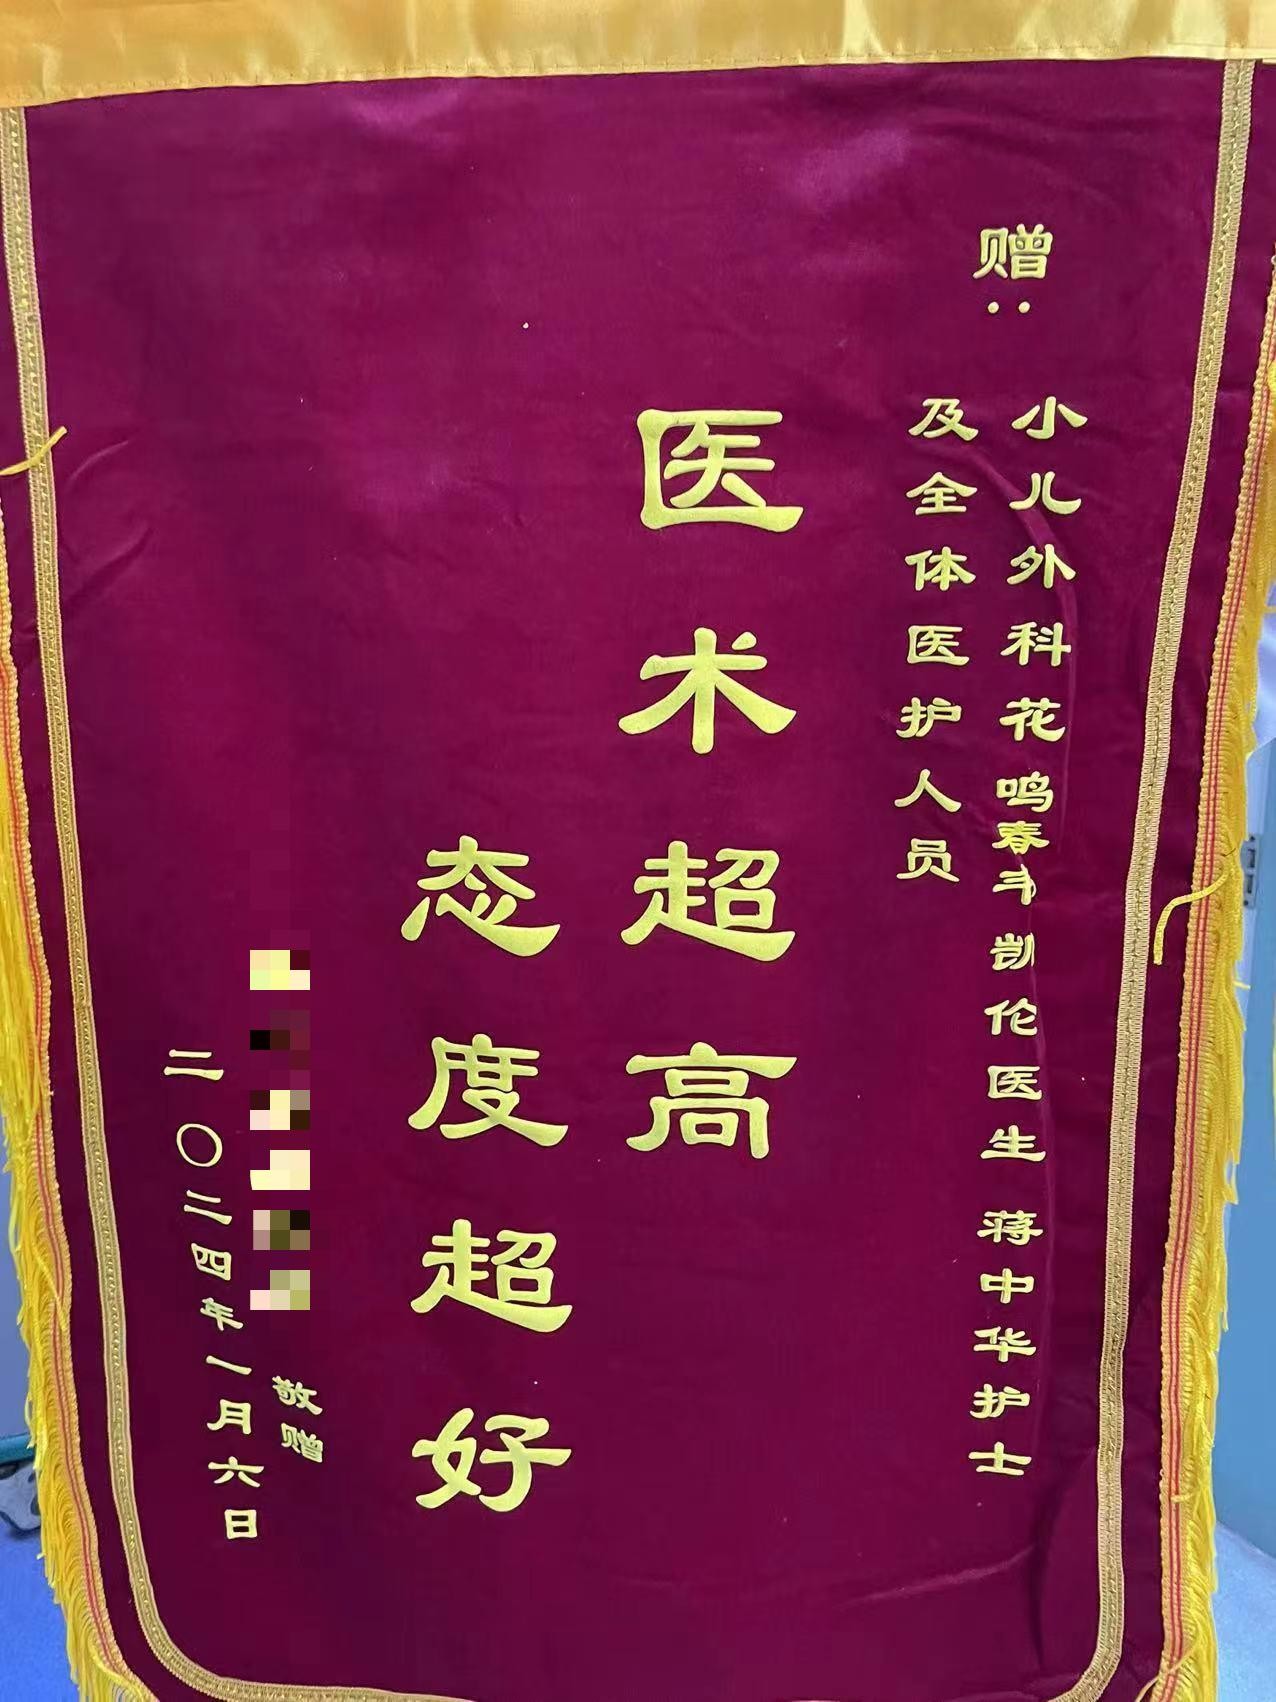 赠：
小儿外科花鸣春 凯伦医生 蒋中华护士
及全体医护人员
医术超高
态度超好
敬赠
二〇二四年一月六日